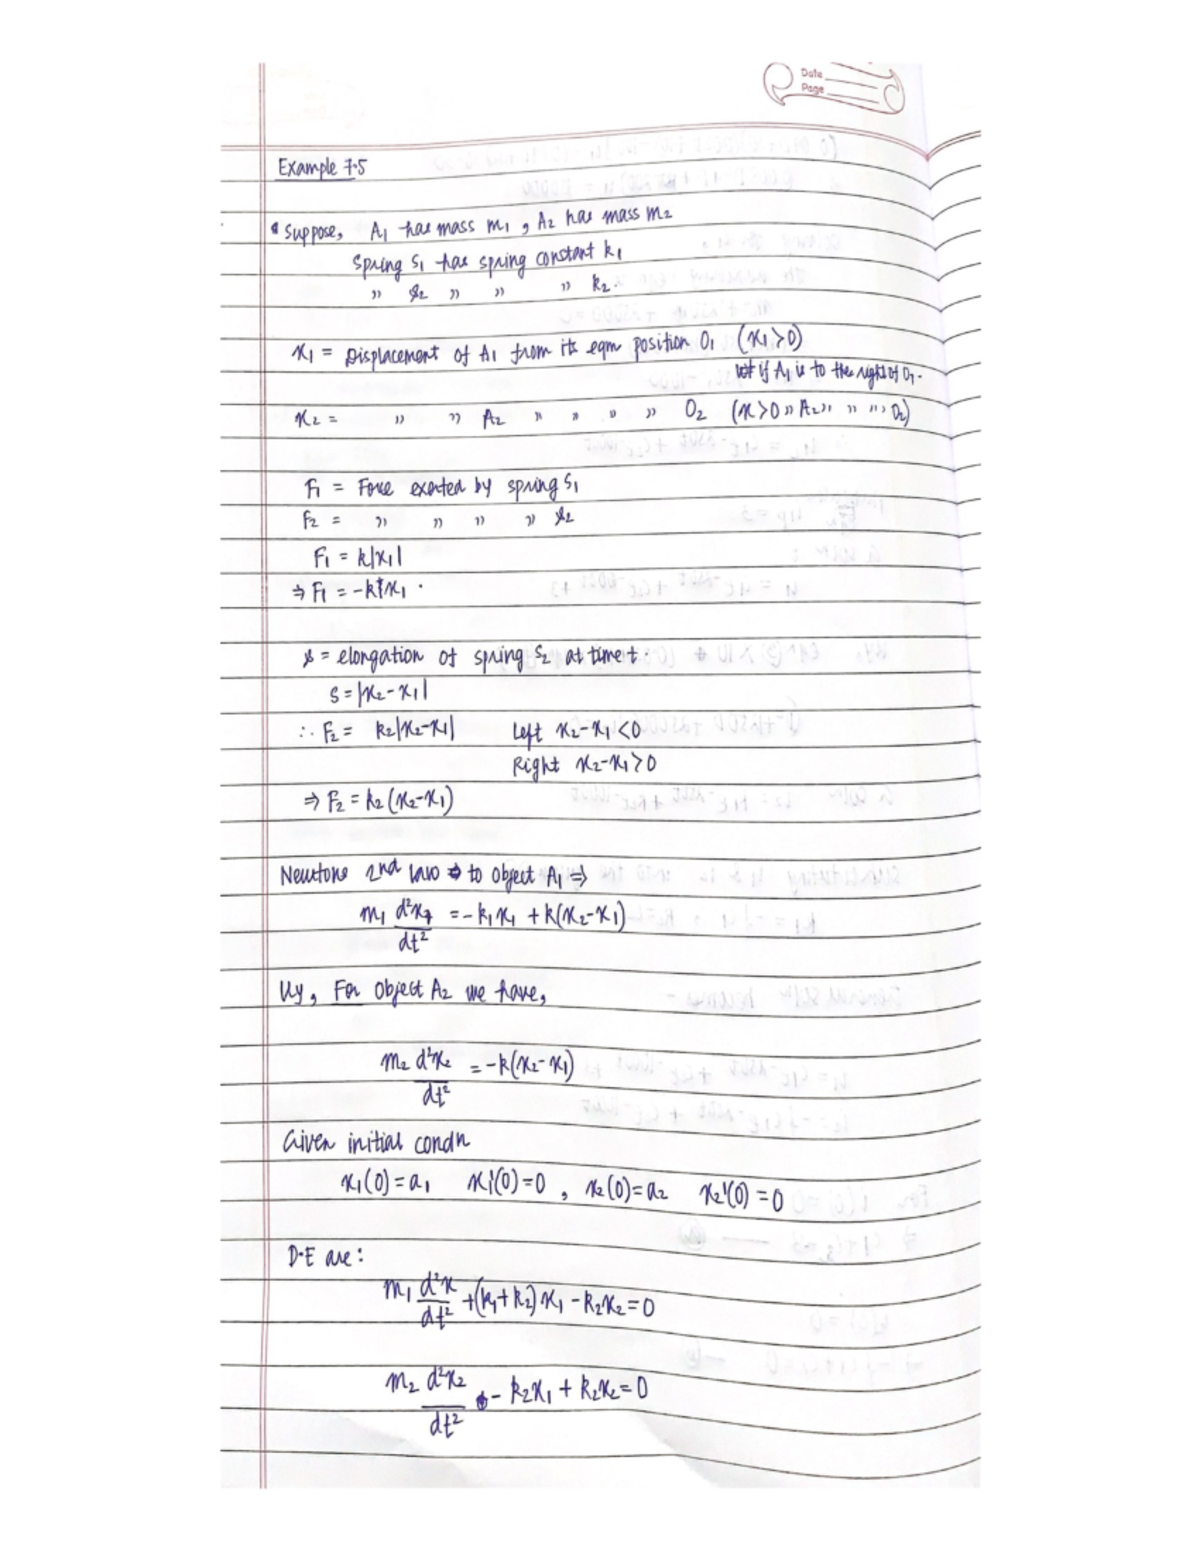 Date
Page
Example 7.5
Suppose, A1 has mass m1, A2 has mass m2
Spring S1 has spring constant k1
" S2 " " " k2.
x1 = Displacement of A1 from its eqm position O1 (x1>0)
if A1 is to the right of O1.
x2 = " " A2 " " " " O2 (x>0 " A2 " " " " O2)
F1 = Force exerted by spring S1
F2 = " " " " S2
F1 = k|x1|
⇒ F1 = -k x1.
s = elongation of spring S2 at time t.
S = |x2-x1|
∴ F2 = k2|x2-x1| Left x2-x1<0
Right x2-x1>0
⇒ F2 = k2(x2-x1)
Newtons 2nd law to object A1 ⇒
m1 d²x1/dt² = -k1x1 + k(x2-x1)
lly, For object A2 we have,
m2 d²x2/dt² = -k(x2-x1)
Given initial condn
x1(0)=a1 x1'(0)=0, x2(0)=a2 x2'(0)=0
D.E are:
m1 d²x/dt² +(k1+k2)x1 - k2x2=0
m2 d²x2/dt² - k2x1 + k2x2=0